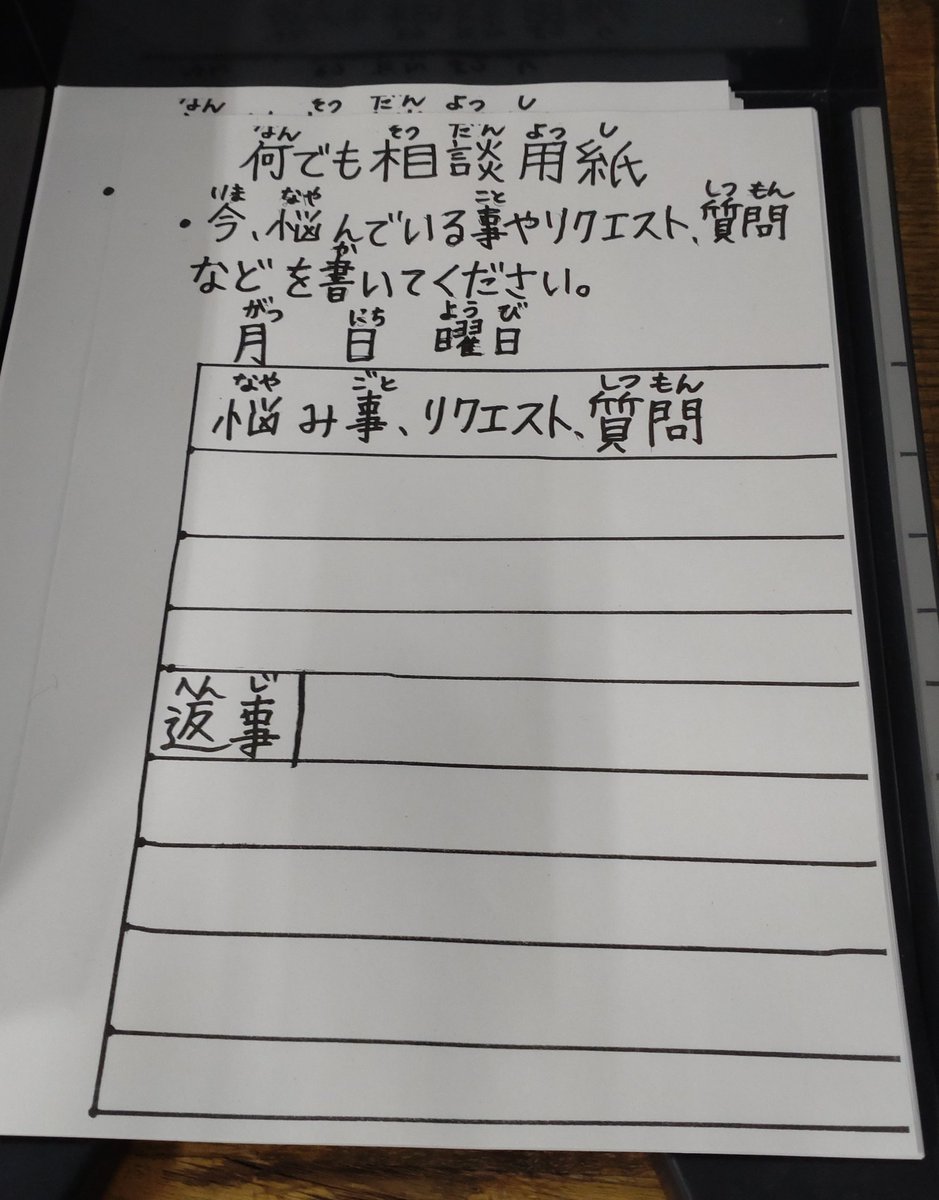 なん そつ だん よっ し
なん そつ だん よっ し
何でも相談用紙
いま なや こと しつ もん
・今、悩んでいる事やリクエスト、質問
か
などを書いてください。
がつ にち よう び
月 日 曜日
なや ごと しつ もん
悩み事、リクエスト、質問
へん じ
返事